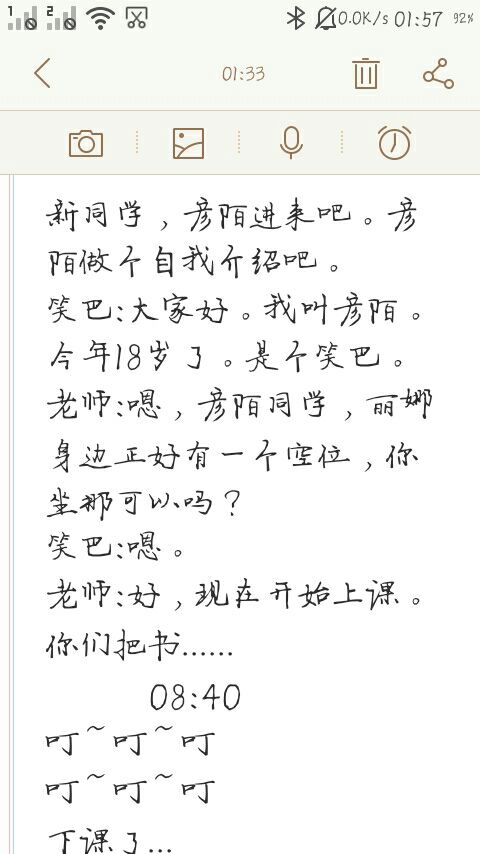 1 2 0.0K/s 01:57 92%
01:33
新同学，彦陌进来吧。彦
陌做个自我介绍吧。
笑巴:大家好。我叫彦陌。
今年18岁了。是个笑巴。
老师:嗯，彦陌同学，丽娜
身边正好有一个空位，你
坐那可以吗？
笑巴:嗯。
老师:好，现在开始上课。
你们把书......
08:40
叮~叮~叮
叮~叮~叮
下课了...